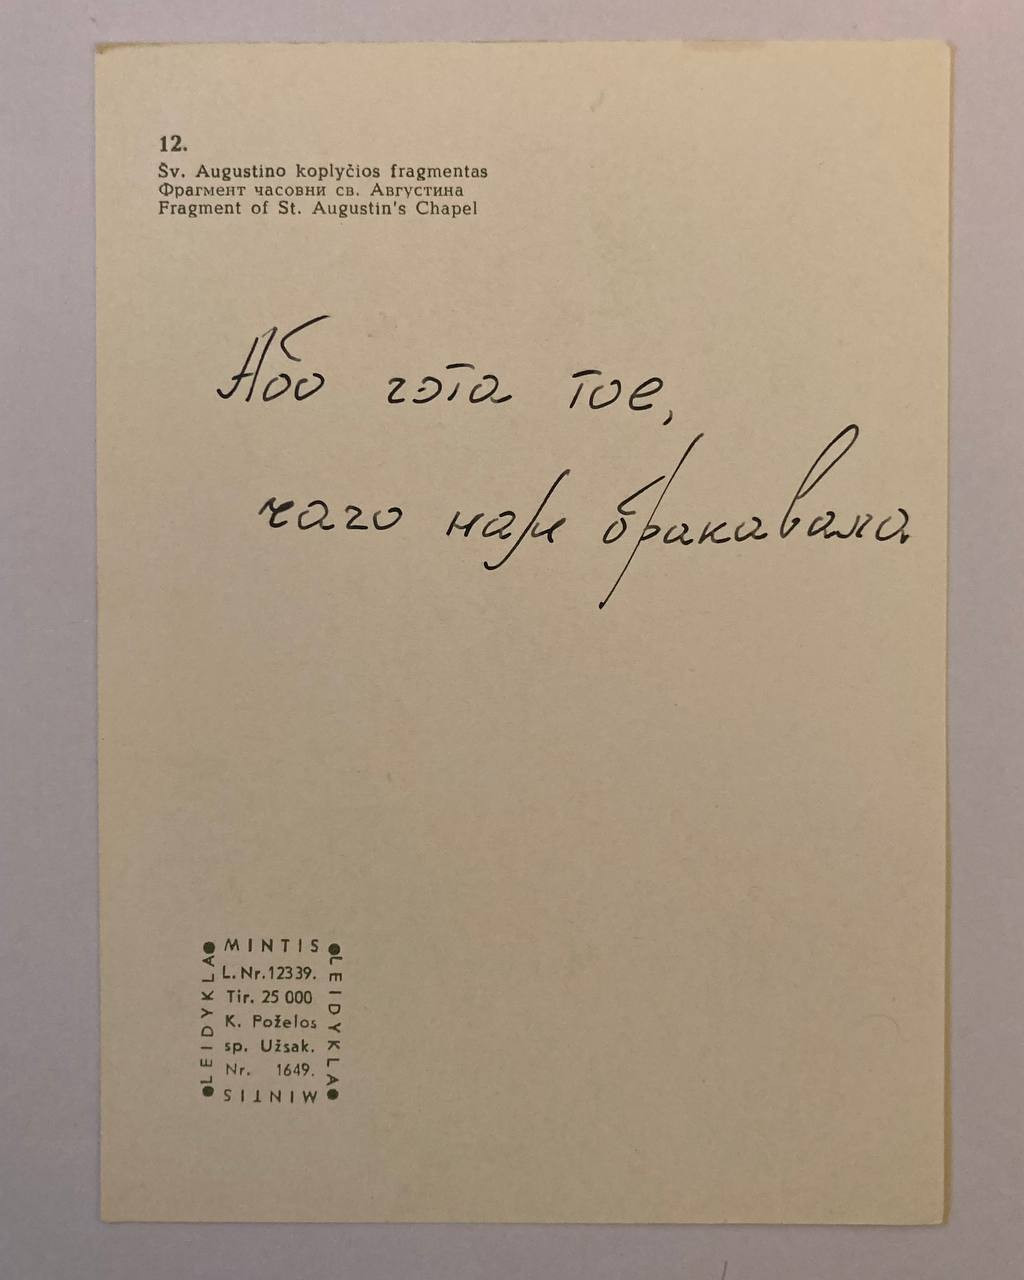 12.
Šv. Augustino koplyčios fragmentas
Фрагмент часовни св. Августина
Fragment of St. Augustin's Chapel
Або гэта тое,
чаго нам бракавала
MINTIS
L. Nr. 12339.
Tir. 25 000
K. Poželos
sp. Užsak.
Nr. 1649.
MINTIS
LEIDYKLA
LEIDYKLA